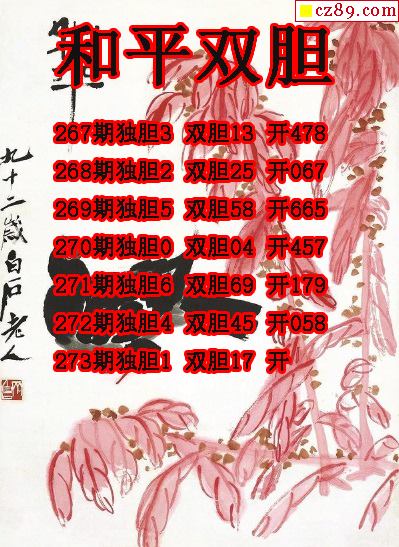 cz89.com
和平
和平双胆
267期独胆3 双胆13 开478
268期独胆2 双胆25 开067
269期独胆5 双胆58 开665
270期独胆0 双胆04 开457
271期独胆6 双胆69 开179
272期独胆4 双胆45 开058
273期独胆1 双胆17 开
九十二岁白石老人